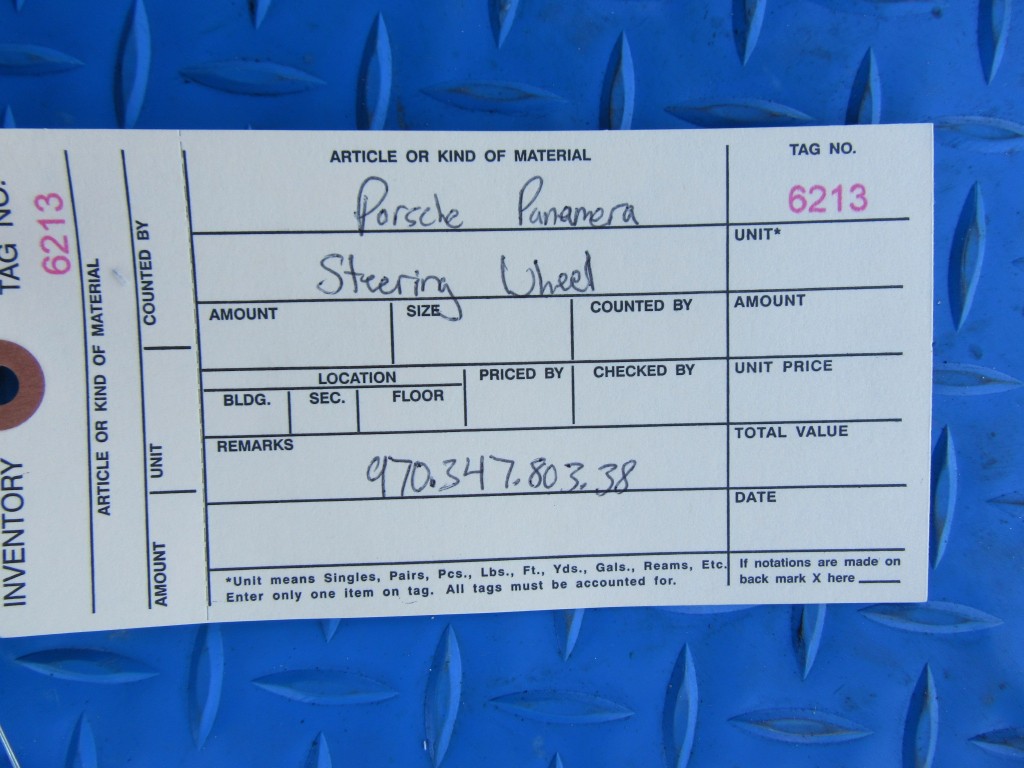 TAG NO.
6213
INVENTORY
ARTICLE OR KIND OF MATERIAL
COUNTED BY
UNIT
AMOUNT
ARTICLE OR KIND OF MATERIAL
Porsche Panamera
Steering Wheel
TAG NO.
6213
UNIT*
AMOUNT
SIZE
COUNTED BY
AMOUNT
LOCATION
BLDG.
SEC.
FLOOR
PRICED BY
CHECKED BY
UNIT PRICE
REMARKS
970.347.803.38
TOTAL VALUE
DATE
*Unit means Singles, Pairs, Pcs., Lbs., Ft., Yds., Gals., Reams, Etc.
Enter only one item on tag. All tags must be accounted for.
If notations are made on
back mark X here